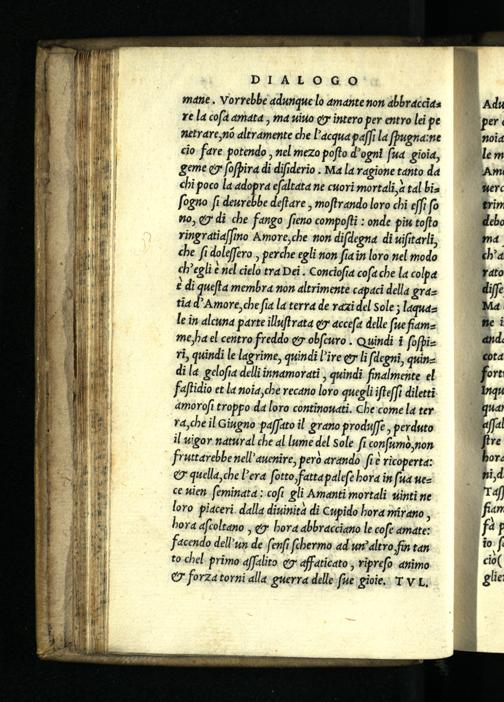 DIALOGO
mane. Vorrebbe adunque lo amante non abbraccia=
re la cosa amata, ma uiuo & intero per entro lei pe
netrare, nō altramente che l'acqua passi la spugna: ne
cio fare potendo, nel mezo posto d'ogni sua gioia,
geme & sospira di disiderio. Ma la ragione tanto da
chi poco la adopra esaltata ne cuori mortali, à tal bi=
sogno si deurebbe destare, mostrando loro chi essi so
no, & di che fango sieno composti: onde piu tosto
ringratiassino Amore, che non disdegna di uisitarli,
che si dolessero, perche egli non sia in loro nel modo
ch'egli è nel cielo tra Dei. Conciosia cosa che la colpa
è di questa membra non altrimente capaci della gra=
tia d'Amore, che sia la terra de razi del Sole; laqua=
le in alcuna parte illustrata & accesa delle sue fiam=
me, ha el centro freddo & obscuro. Quindi i sospi=
ri, quindi le lagrime, quindi l'ire & li sdegni, quin=
di la gelosia delli innamorati, quindi finalmente el
fastidio et la noia, che recano loro quegli istessi diletti
amorosi troppo da loro continouati. Che come la ter
ra, che il Giugno passato il grano produsse, perduto
il uigor natural che al lume del Sole si consumò, non
fruttarebbe nell'auenire, però arando si è ricoperta:
& quella, che l'era sotto, fatta palese hora in sua ue=
ce uien seminata: cosi gli Amanti mortali uinti ne
loro piaceri dalla diuinità di Cupido hora mirano,
hora ascoltano, & hora abbracciano le cose amate:
facendo dell'un de sensi schermo ad un'altro, fin tan
to chel primo assalito & affaticato, ripreso animo
& forza torni alla guerra delle sue gioie. TVL.